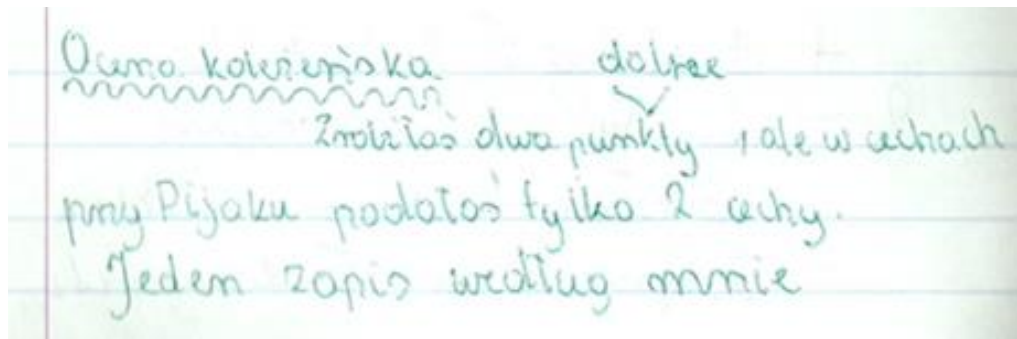 Ocena koleżeńska dobrze
Zrobiłaś dwa punkty, ale w cechach
przy Pijaku podałaś tylko 2 cechy.
Jeden zapis według mnie